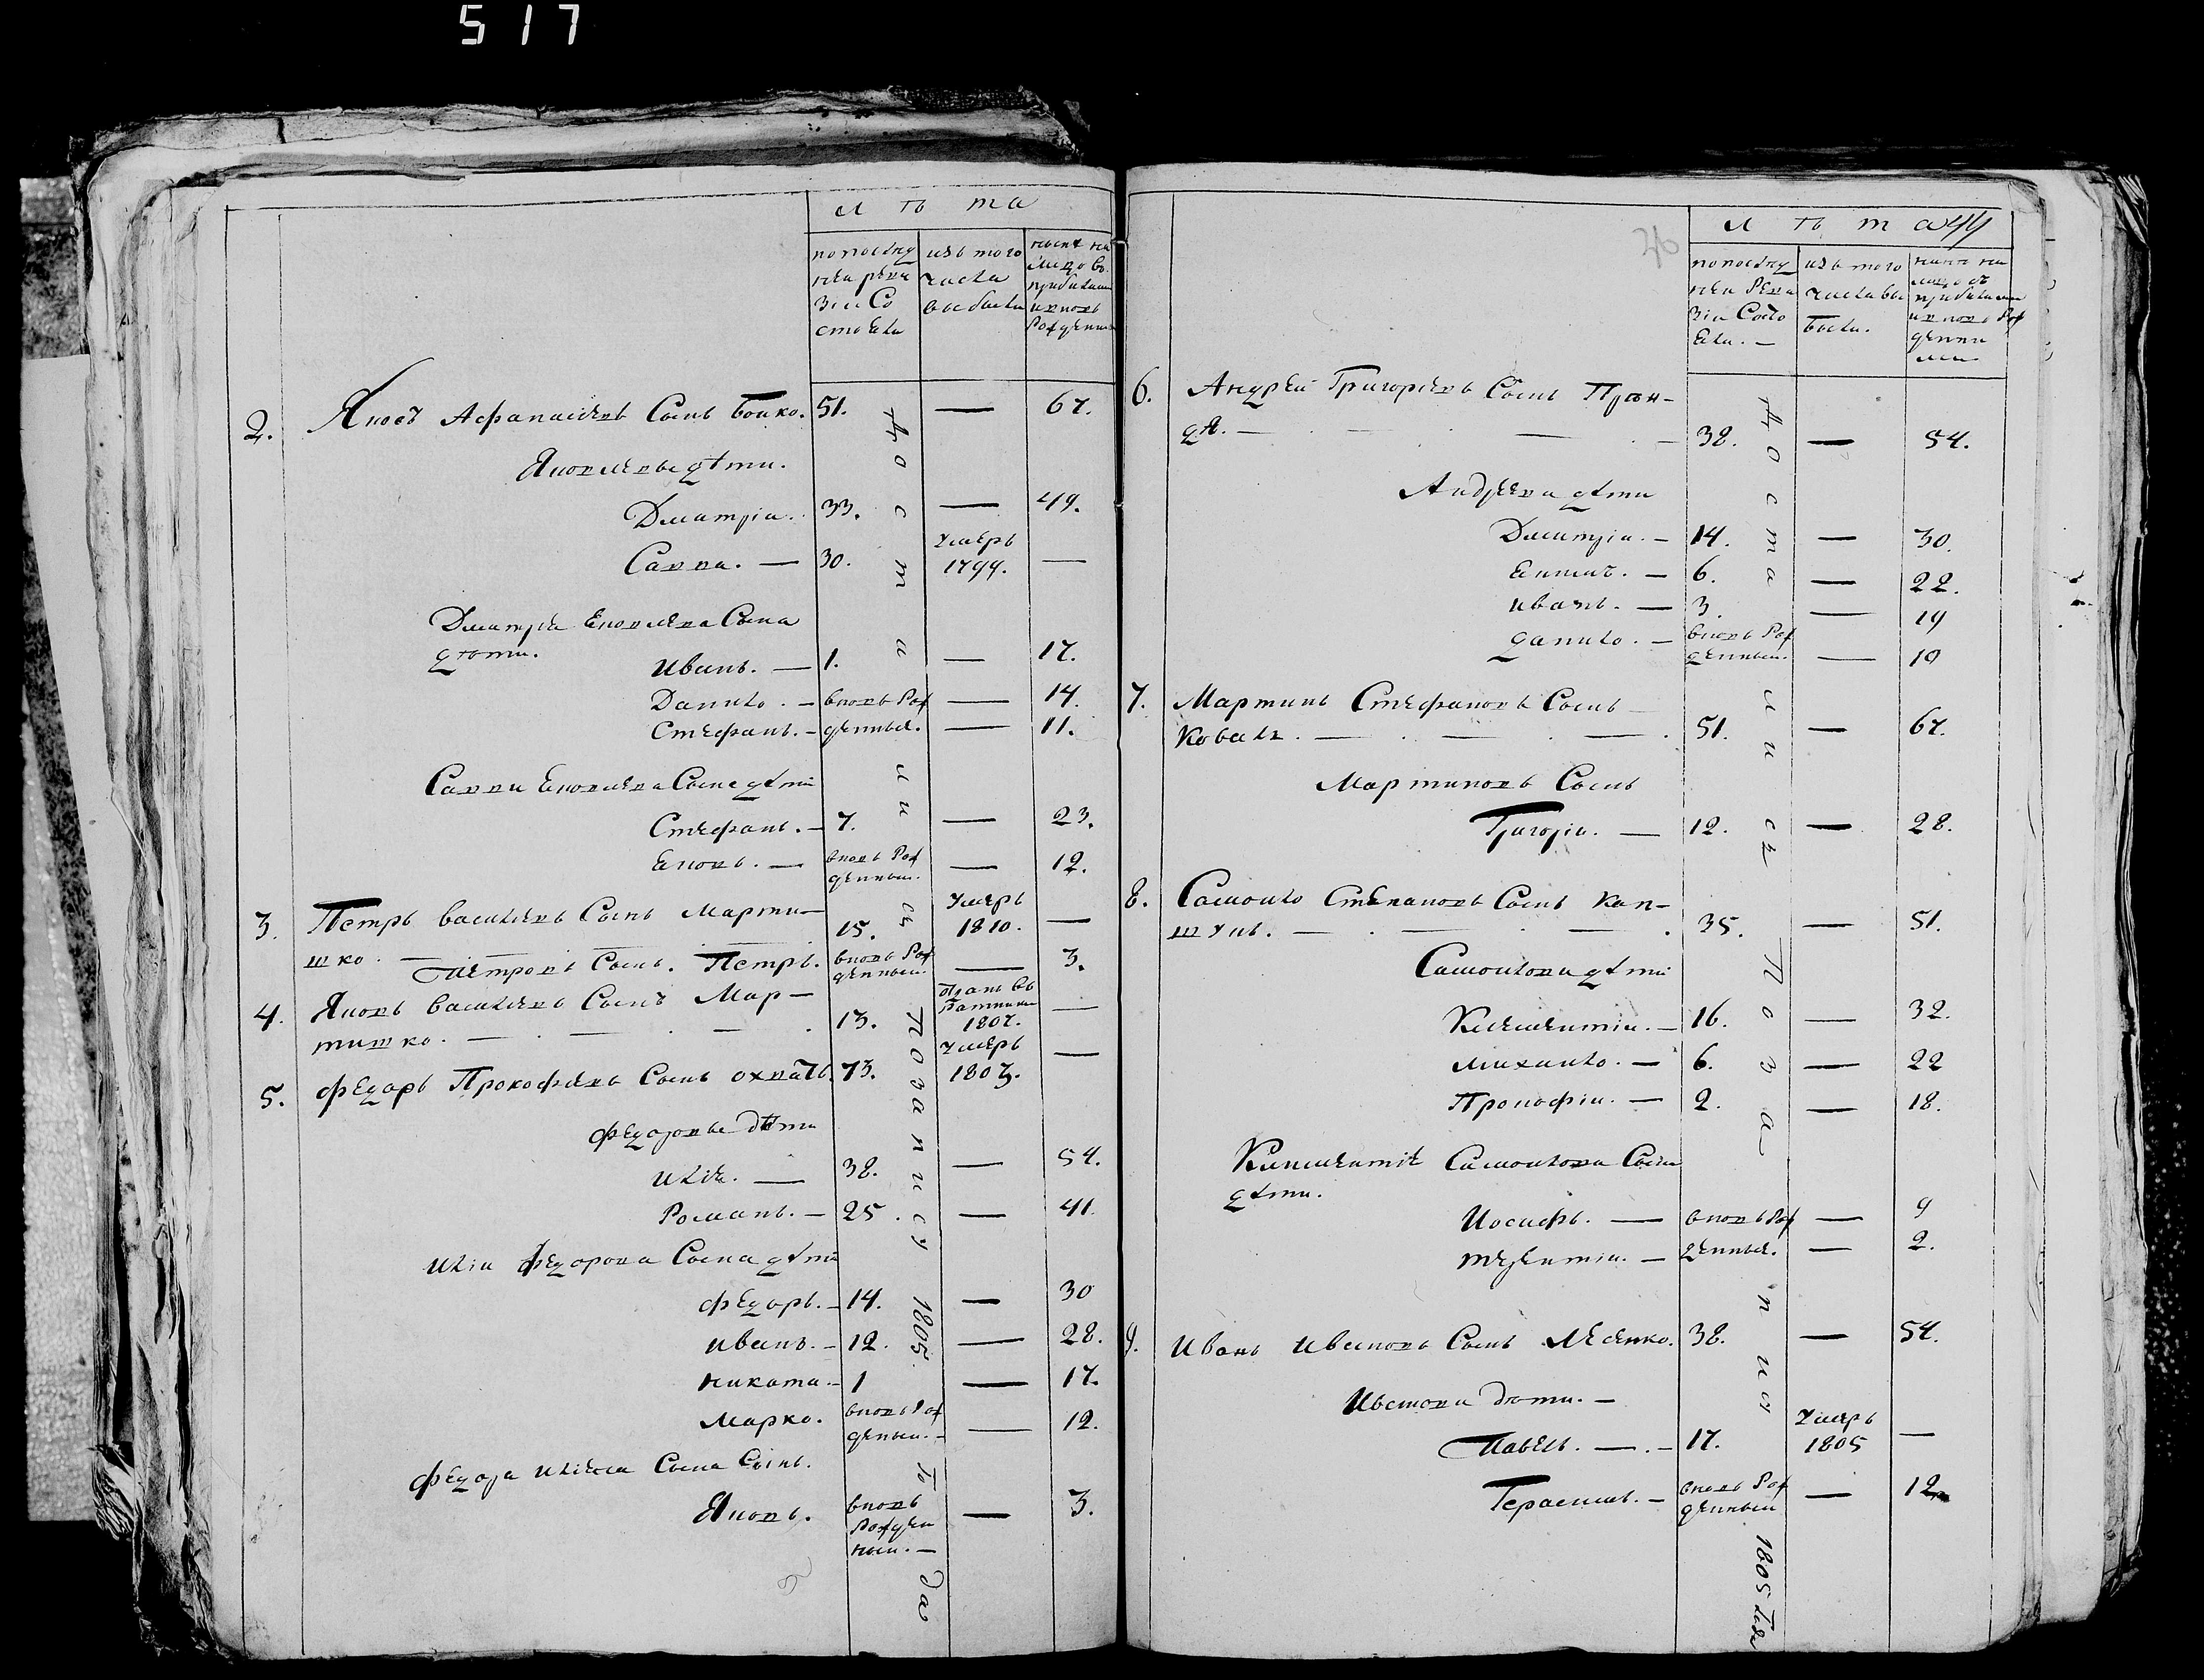 517
лѣта
по послед
ней реви
зіи Со
стояли
изъ того
числа
выбыли
нынѣ на
лицо со
прибылыми
и вновь
Рожденны
2. Яковъ Афанасіевъ Сынъ Бойко. 51. — 67.
Яковлевы дѣти.
Дмитрій. 33. — 49.
Савва. — 30. умеръ 1799. —
Дмитрія Яковлева Сына
дѣти.
Иванъ. — 1. — 17.
Данило. — вновь Рож — 14.
Стефанъ. — денныя. — 11.
Саввы Яковлева Сына дѣти
Стефанъ. — 7. — 23.
Яковъ. — вновь Рож
денный. — 12.
3. Петръ Василіевъ Сынъ Марти—
шко. — 15. умеръ 1810. —
Петровъ Сынъ. Петръ. вновь Рож
денный. — 3.
4. Яковъ Василіевъ Сынъ Мар—
тишко. — 13. 1807. —
5. Федоръ Прокофіевъ Сынъ 73. умеръ 1803. —
Федоровы дѣти
Илія. — 38. — 54.
Романъ. — 25. — 41.
Иліи Федорова Сына дѣти
Федоръ. — 14. — 30
Иванъ. — 12. — 28.
Никита. — 1 — 17.
Марко. вновь Рож
денный. — — 12.
Федора Иліева Сына Сынъ.
Яковъ. вновь
Рожден
ный. — — 3.
Достались по запису 1805 Года
лѣта
по послед
ней Реви
зіи Состо
яли. —
изъ того
числа вы
были.
нынѣ на
лицо съ
прибылыми
и вновь Рож
денны
ми
6. Андрей Григорьевъ Сынъ Прин—
дя. — 38. — 54.
Андреева дѣти
Дмитрій. — 14. — 30.
6. — 22.
Иванъ. — 3. — 19
Данило. — вновь Рож
денный. — 10
7. Мартинъ Стефановъ Сынъ
Коваль. — 51. — 67.
Мартиновъ Сынъ
Григорій. — 12. — 28.
8. Самойло Степановъ Сынъ Кап—
35. — 51.
Самойлова дѣти
Климентій. — 16. — 32.
Михайло. — 6. — 22
Прокофій. — 2. — 18.
Климентія Самойлова Сына
дѣти.
Иосифъ. — вновь Рож — 9
Терентій. — денныя. — 2.
9. Иванъ Ивановъ Сынъ 38. — 54.
Иванова дѣти. —
Павелъ. — 17. умеръ 1805 —
Герасимъ. — вновь Рож
денный — 12
Достались по запис 1805 Года